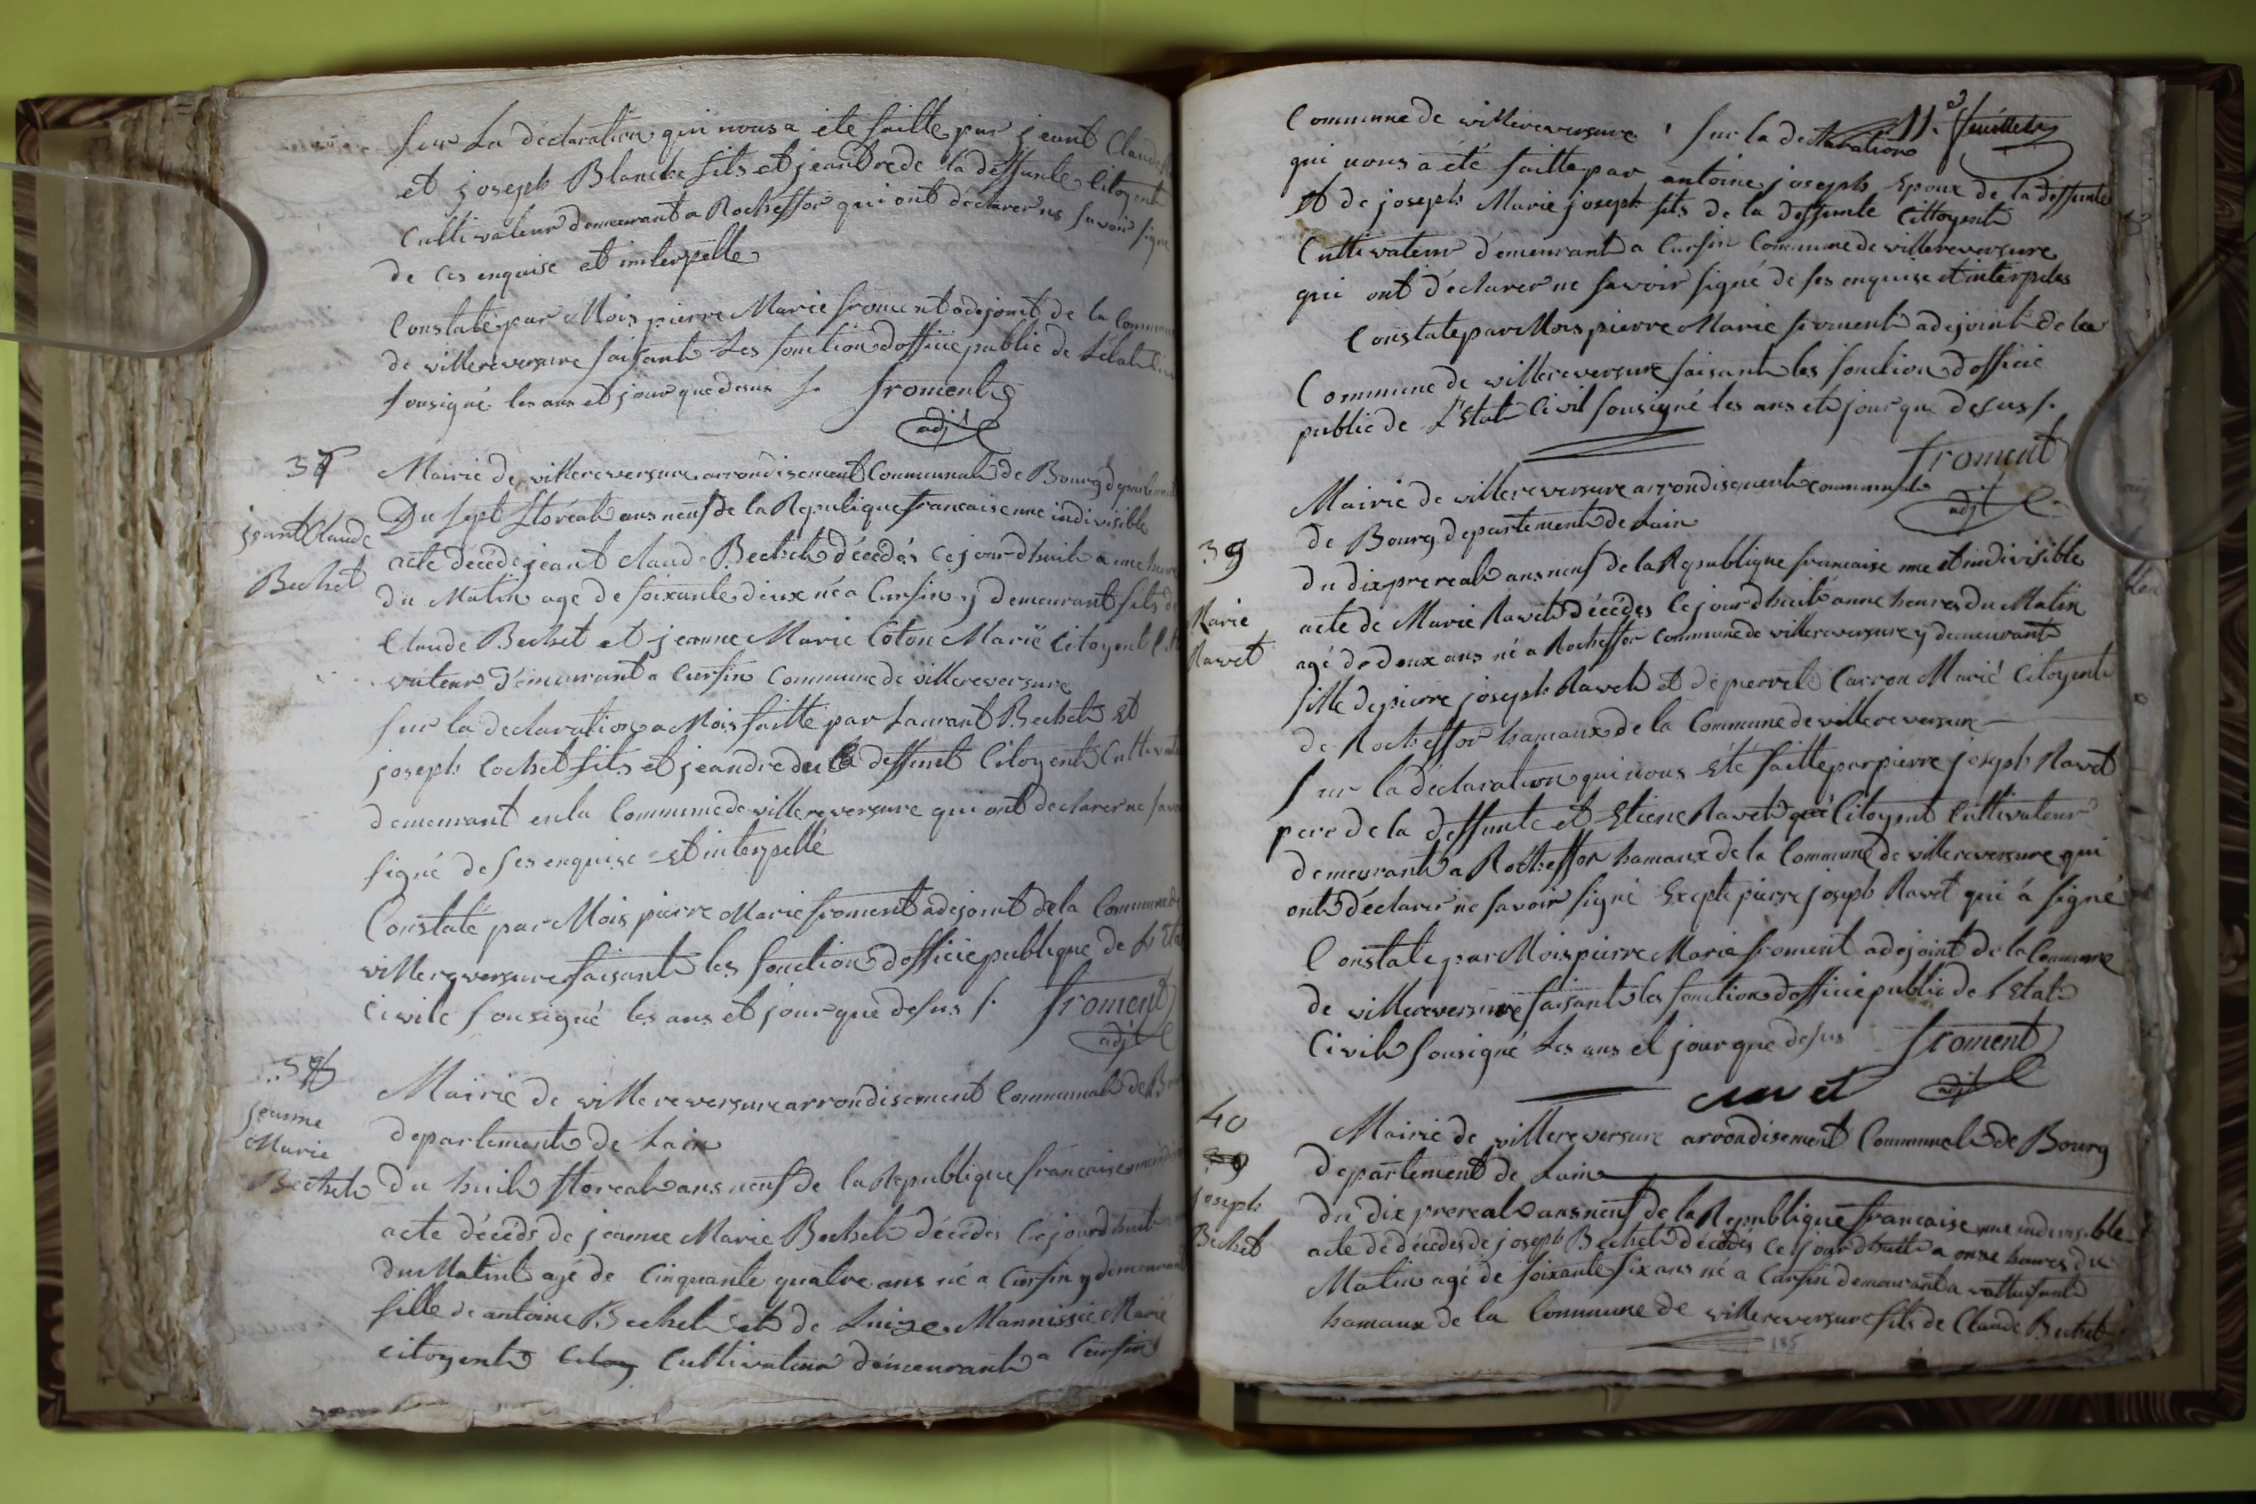 sur La déclaration qui nous a été faitte par jeant Claude
et joseph Blanche fils et jeandre de la deffunte Citoyent
Cultivateur demeurant a Rocheffor qui ont declarer ne savoir signe
de ces enquise et interpelle
Constaté par Mois pierre Marie froment adejoint de la Commune
de villereversure faisant Les fonction d'officie public de L'etat
sousigné les ans et jour que desus /. froment
adjt
37
jeant Claude
Bechet
Mairie de villereversure arrondisement Communal de Bourg departement
Du sept floréal ans neuf de la Republique francaise une indivisible
acte décéde jeant claude Bechet décédés ce jourd'huit a une heure
du Matin age de soixante deux né a Cursin y demeurant fils de
Claude Bechet et jeanne Marie Coton Marié Citoyent
vateur demeurant a Cursin Commune de villereversure
sur la declaration a Mois faitte par Laurant Bechet Et
joseph Cochet fils et jeandre du deffunt Citoyent Cultivate
demeurant en la Commune de villereversure qui ont declarer ne savo
signé de ses enquise Et interpellé
Constaté par Mois pierre Marie froment adejoint de la Commune de
villereversure faisant les fonction d'officie publique de L'Eta
Civile sousigné les ans et jour que desus /. froment
adjt
38
jeanne
Marie
Bechet
Mairie de villereversure arrondisement Communal de Bou
departement de Lain
Du huit floreal ans neuf de la Republique francaise
acte décéds de jeanne Marie Bechet décédés Ce jourd'huit
du Matint agé de Cinquante quatre ans né a Cursin y demeurant
fille de antoine Bechet et de Luize Mannissié Marié
citoyent Cultivateur demeurant a Cursin
11.e feuillet
Commune de villereversure sur la declaration
qui nous a été faitte par antoine joseph Epoux de la deffunte
Et de joseph Marie joseph fils de la deffunte Cittoyent
Cultivateur demeurant a Cursin Commune de villereversure
qui ont déclarer ne savoir signé de ses enquise et interpeles
Constate par Mois pierre Marie froment adejoint de la
Commune de villereversure faisant les fonction d'officie
public de L'Etat Civil sousigné les ans et jour que desus /.
froment
adjt
39
Marie
Ravet
Mairie de villereversure arrondisement communal
de Bourg departement de Lain
du dix prereal ans neuf de la Republique francaise une et indivisible
acte de Marie Ravet décédes Ce jourd'huit a une heures du Matin
agé de deux ans né a Rocheffor Commune de villereversure y demeurant
fille de pierre joseph Ravet et de pierrete Carron Marié Citoyent
de Rocheffor hamaux de la Commune de villereversure
sur la déclaration qui nous Eté faitte par pierre joseph Ravet
pere de la deffunte et Etiene Ravet qui Citoyent Cultivateur
demeurant a Rocheffor hamaux de la Commune de villereversure qui
ont déclarer ne savoir signé Exepte pierre joseph Ravet qui à signé
Constate par Mois pierre Marie froment adejoint de la Commune
de villereversure faisant les fonction d'officie public de L'Etat
Civil sousigné Les ans et jour que desus froment
ravet adjt
40
39
joseph
Bechet
Mairie de villereversure arrondisement Communal de Bourg
departement de Lain
du dix prereal ans neuf de la Republique francaise une indivisible
acte de décédes de joseph Bechet décédés Ce jourd'huit a onze heures du
Matin agé de soixante six ans né a Cursin demeurant a
hamaux de la Commune de villereversure fils de Claude Bechet
185